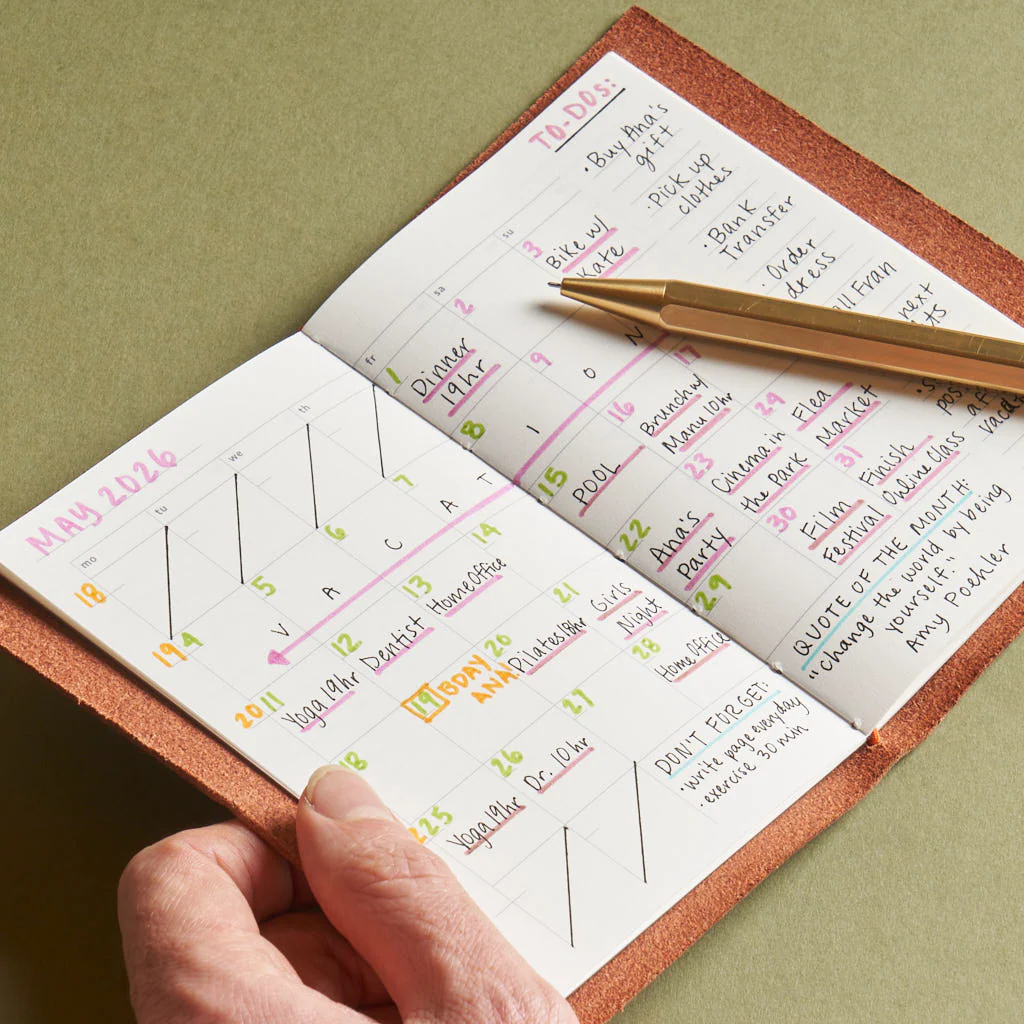 MAY 2026
mo tu we th
18
19 4 5 6 7
V A C A T
20 11 Yoga 19hr 12 Dentist 13 HomeOffice 14
18 19 BDAY
ANA! 20 Pilates 18hr 21 Girls
Night
25 Yoga 19hr 26 Dr. 10hr 27 28 Home Office
DON'T FORGET:
· write page everyday
· exercise 30 min
fr sa su
1 Dinner
19hr 2 3 Bike w/
Kate
8 9
I O N
15 POOL 16 Brunch w/
Manu 10hr 17
22 Ana's
Party 23 Cinema in
the Park 24 Flea
Market
29 30 Film
Festival 31 Finish
Online class
TO-DOS:
· Buy Ana's
gift
· Pick up
clothes
· Bank
Transfer
· Order
dress
Fran
next
QUOTE OF THE MONTH:
"change the world by being
yourself."
Amy Poehler